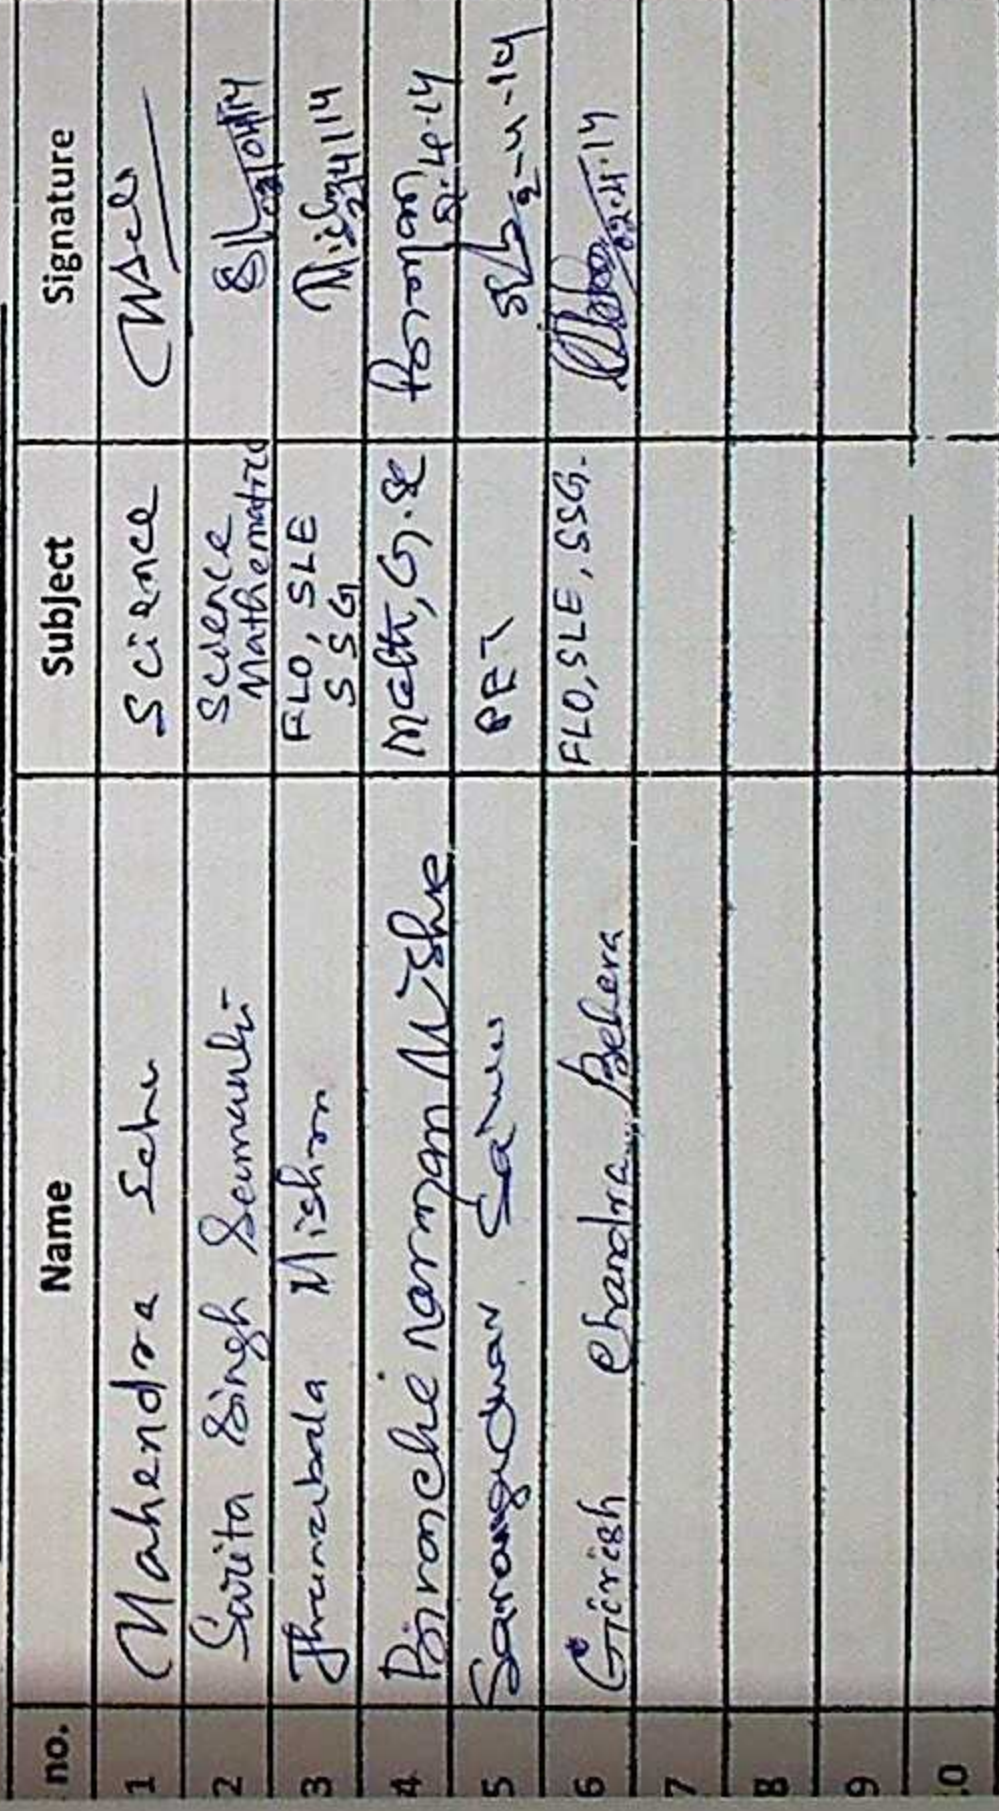 no. Name Subject Signature
1 Mahendra Sahu Science
2 Sarita Singh Samanta Science
Mathematics 02/04/14
3 Jharanabala Mishra FLO, SLE
SSG Mishra 2/4/14
4 Biranchi narayan Mishra Math, G.Sc Bnarayan
2.4.14
5 Sahu PET 2-4-14
6 Girish Chandra Behera FLO, SLE, SSG. 02.4.14
7
8
9
10